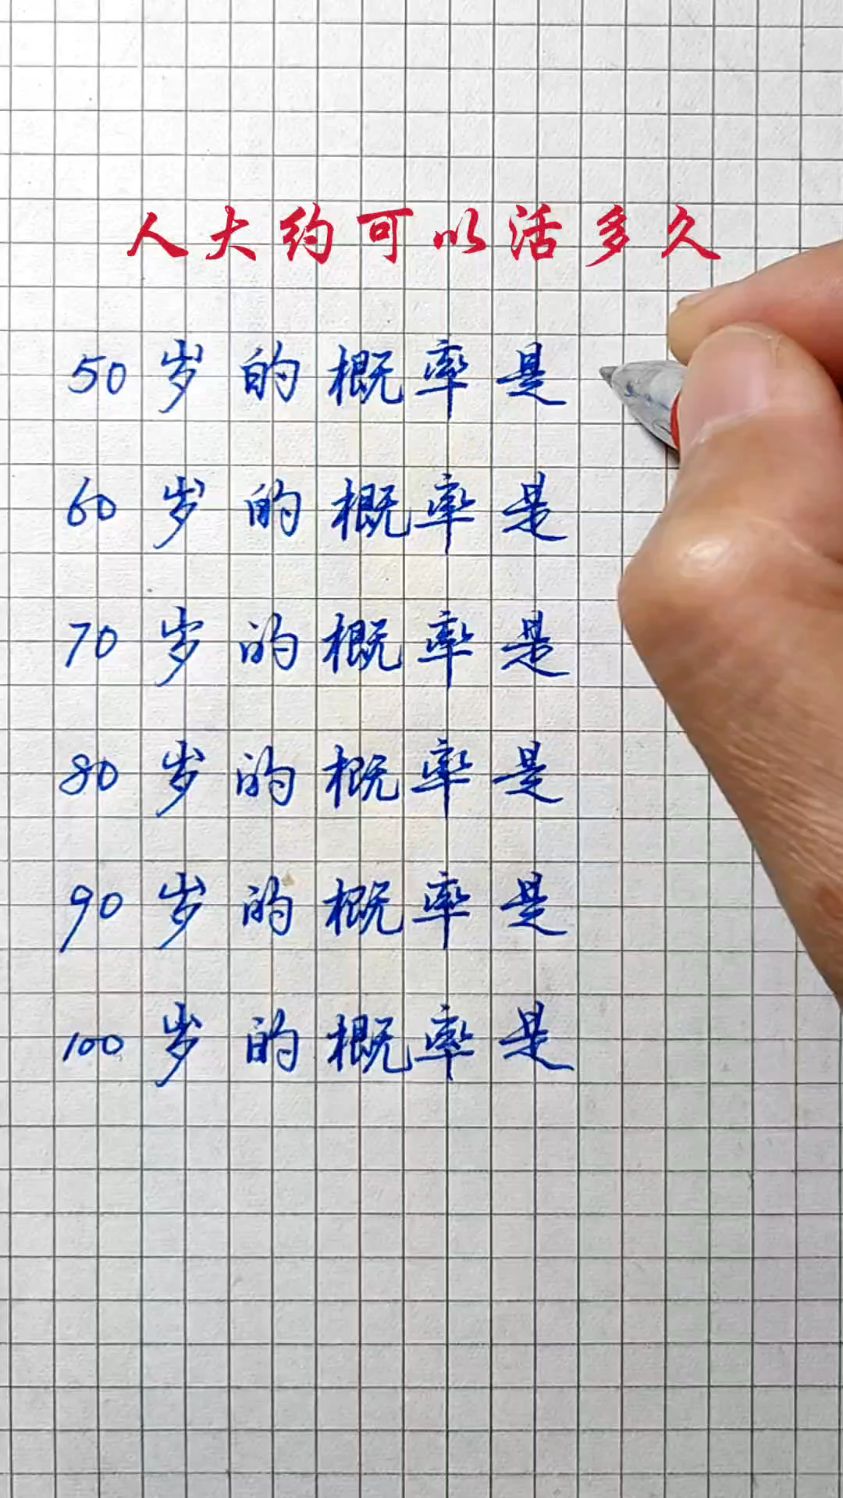 人大约可以活多久
50岁的概率是
60岁的概率是
70岁的概率是
80岁的概率是
90岁的概率是
100岁的概率是